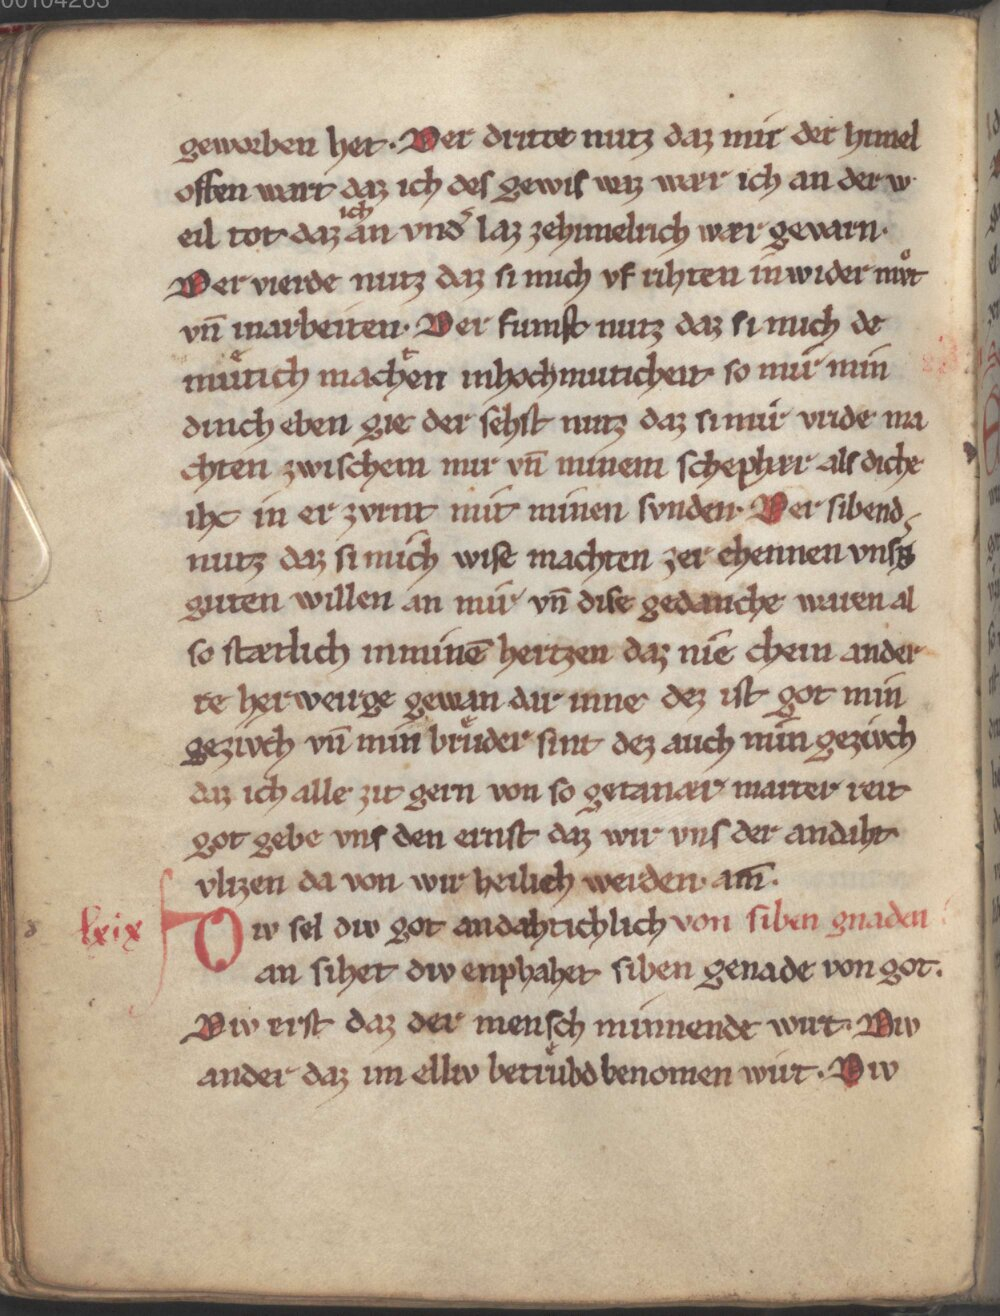 00104263
geworben het. Der dritte nutz daz mir der himel
offen wart daz ich des gewis waz wær ich an der w
eil tot daz ich an vnd͛ laz zehimelrich wær gevarn.
Der vierde nutz daz si mich vf rihten in wider mvͦt
vn̄ in arbeiten. Der fumft nutz daz si mich de
muͤtich macheten in hochmuticheit so mir min
dinch eben gie der sehst nutz daz si mir vride ma
chten zwischem mir vn̄ minem schephær als diche
ihc in er zvrnt mit minen svnden. Der sibend
nutz daz si mich wise machten zer chennen vnsͤs
guten willen an mir vn̄ dise gedanche waren al
so stætlich in minē hertzen daz nie chein ander
te herweirge gewan dar inne dez ist got min
gezivch vn̄ min bruͤder sint dez auch min gezivch
daz ich alle zit gern von so getanær marter reit
got gebe vns den ernst daz wir vns der andaht
vlizen da von wir heilich werden am̄.
lxix Div sel div got andahtichlich von siben gnaden
an sihet div enphahet siben genade von got.
Div erst daz der mensch minnende wirt. Div
ander daz im elliv betruͤbd benomen wirt. Div